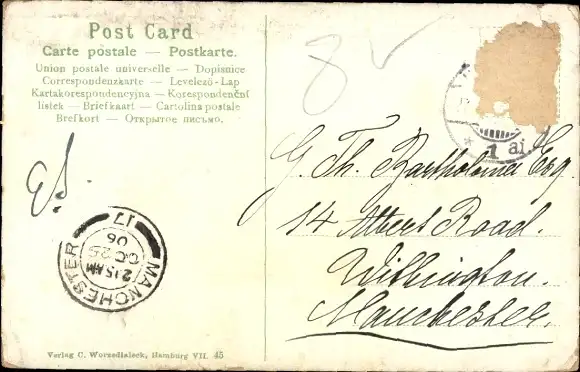 Post Card
Carte postale — Postkarte.
Union postale universelle — Dopisnice
Correspondenzkarte — Levelező-Lap
Kartakorespondencyjna — Korespondenční
lístek — Briefkaart — Cartolina postale
Brefkort — Открытое письмо.
G. Th. Bartholomei Esq
14 Albert Road.
Withington.
Manchester.
MANCHESTER
17
2.15 AM
OC 25
06
1
Verlag C. Worzedialeck, Hamburg VII. 45